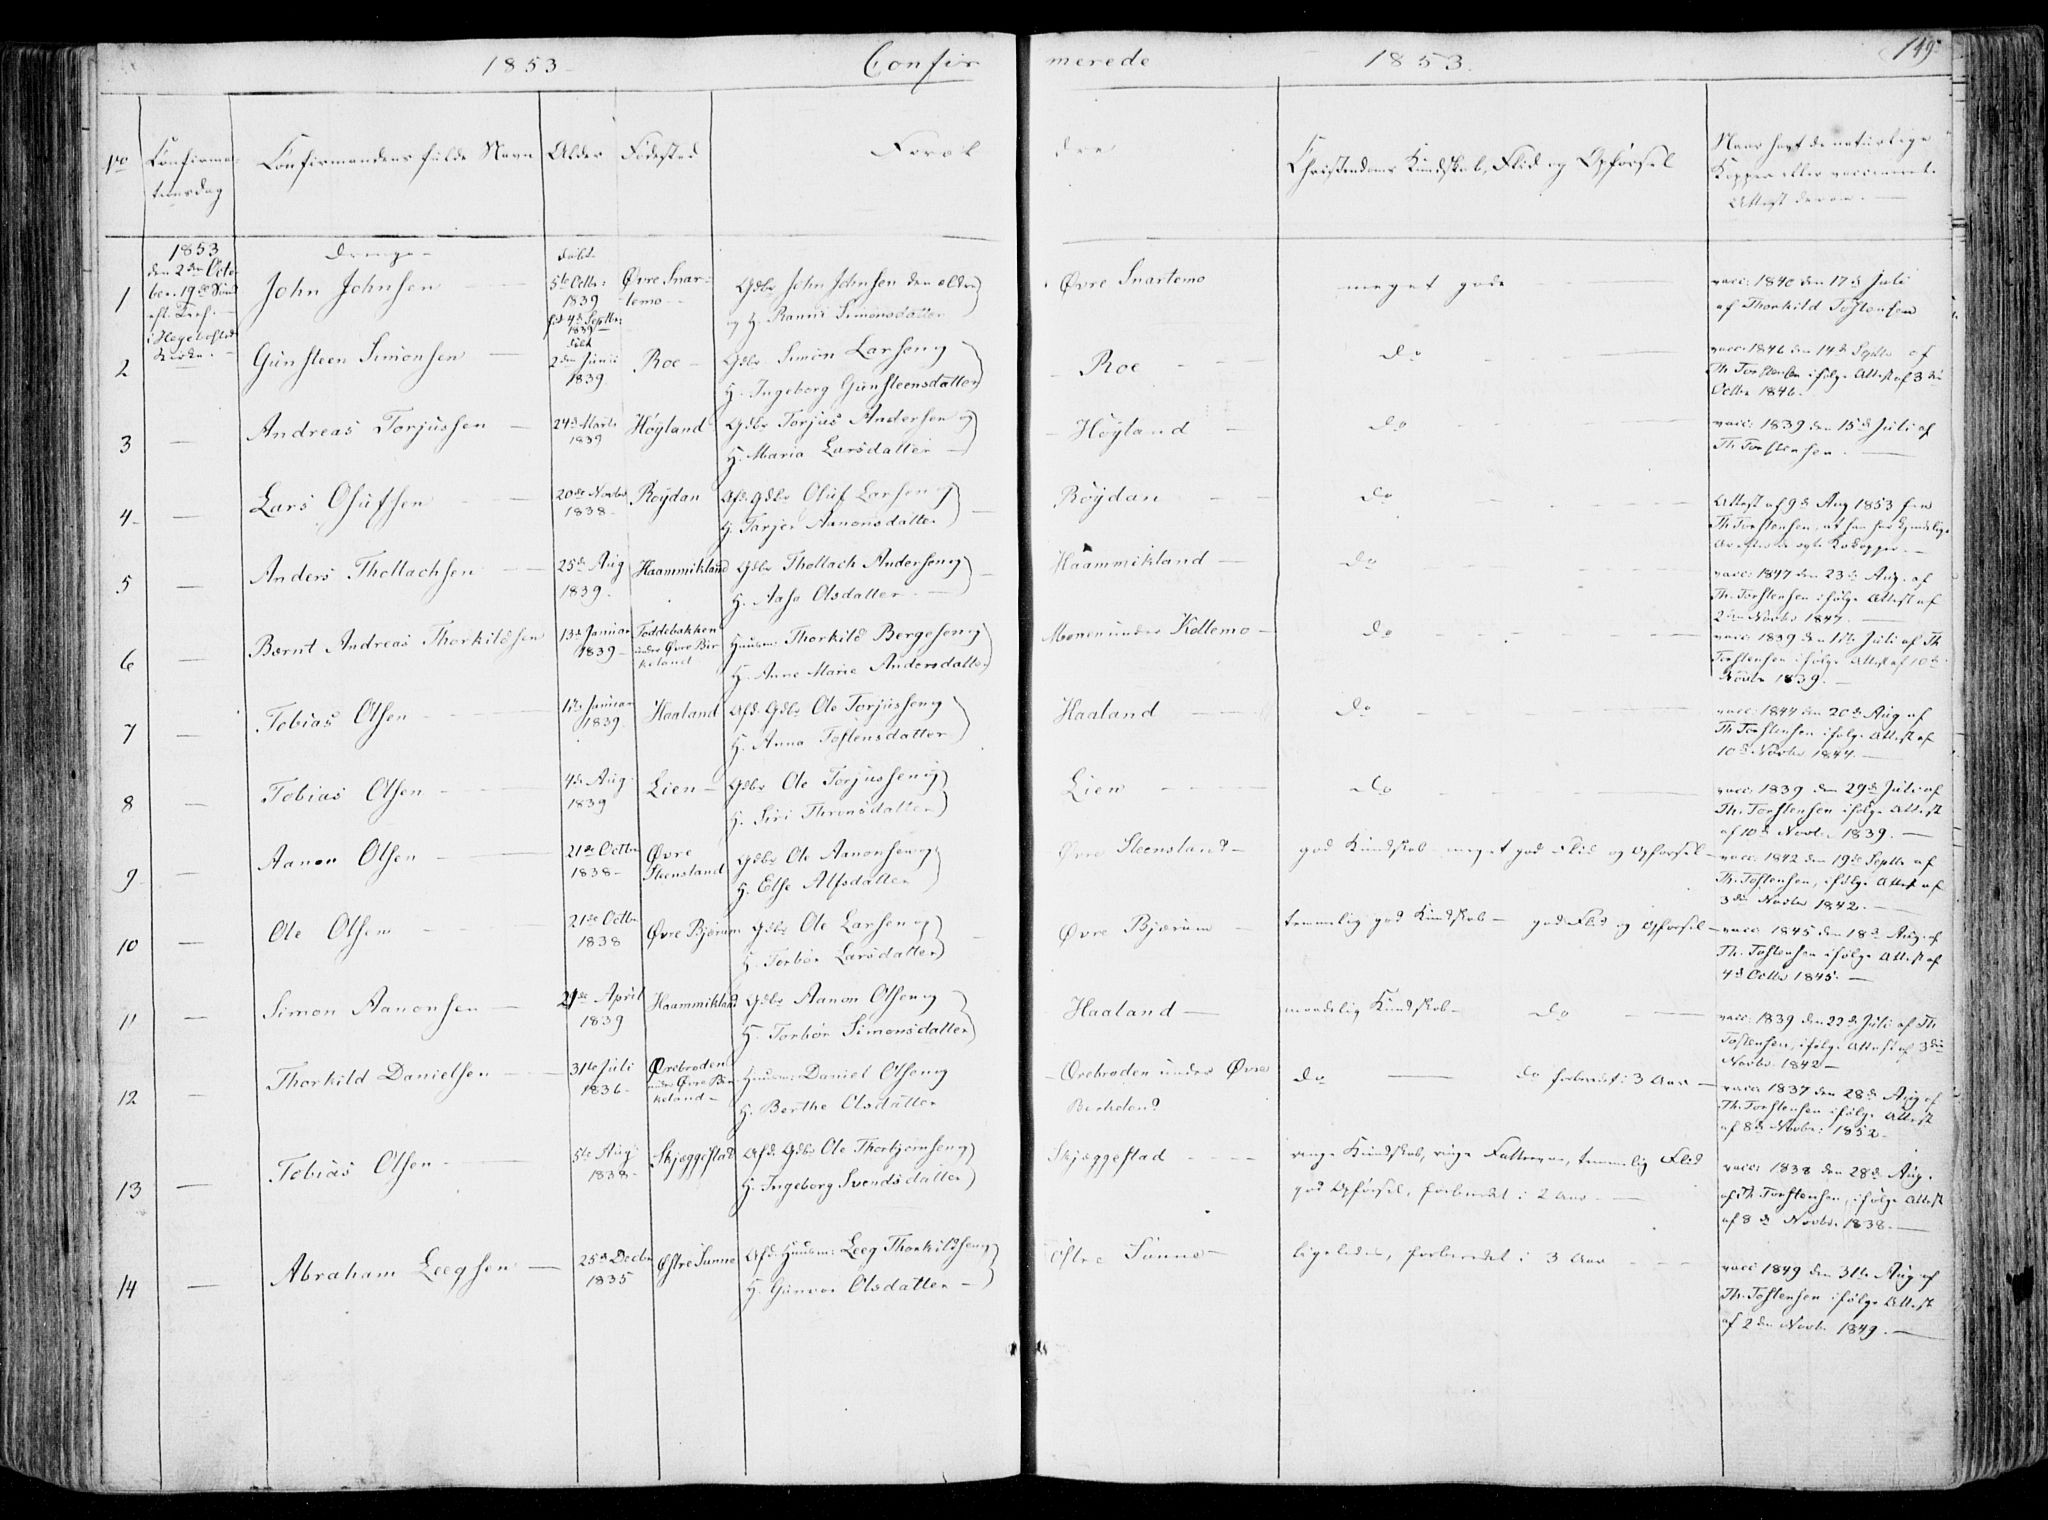 1853 Confirmerede 1853. 149
No Confirmationsdag Confirmandens fulde Navn Alder Fødested Forældre Christendoms Kundskab, Flid og Opførsel Naar havt de naturlige Kopper eller vaccineret. Attest derom.
1853 Drenge døbt
den 2den October 19de Sønd eft. Tref. i Hegebostad Kirke.
1 John Johnsen 5te Octbr: 1839 fød 4de Septbr: 1839 Øvre Snartemo Gdbr John Johnsen den eldre og H. Ranni Simonsdatter Øvre Snartemo meget gode vacc: 1840 den 17de Juli af Thorkild Tostensen
2 Gunsteen Simonsen født 2den Junii 1839 Roe Gdbr Simon Larsen og H. Ingeborg Gunsteensdatter Roe Do vacc: 1846 den 14de Septbr af Th. Torstensen ifølge Attest af 3die Octbr 1846.
3 Andreas Torjussen 24de Marts 1839 Høyland Gdbr Torjus Andersen og H. Maria Larsdatter Høyland Do vacc: 1839 den 15de Juli af Th. Torstensen.
4 Lars Olufsen 20de Novbr 1838 Røydan Afd. Gdbr Oluf Larsen og H. Tarjer Aanonsdatter Røydan Do Attest af 9de Aug 1853 fra Th. Torstensen, at han har tydelige
5 Anders Thollachsen 25de Aug 1839. Haammikland Gdbr Thollach Andersen og H. Aase Olsdatter. Haammikland Do vacc: 1847 den 23de Aug. af Th. Torstensen ifølge Attest af 2den Novbr 1847.
6 Bærnt Andreas Thorkildsen 13de Januar 1839 Toddebakken under Øvre Birkeland Huusm: Thorkild Bergesen og H. Anne Marie Andersdatter Monen under Kollemo Do vacc: 1839 den 11te Juli af Th Torstensen ifølge Attest af 10de Novbr 1839.
7 Tobias Olsen 17de Januar 1839. Haaland Afd. Gdbr Ole Torjussen og H. Anna Tostensdatter Haaland Do vacc: 1844 den 20de Aug af Th Torstensen ifølge Attest af 10de Novbr 1844.
8 Tobias Olsen 4de Aug. 1839 Lien Gdbr Ole Torjussen og H. Siri Thronsdatter Lien Do vacc: 1839 den 29de Juli af Th. Torstensen ifølge Attest af 10de Novbr. 1839.
9 Aanon Olsen 21de Octbr 1838 Øvre Stensland Gdbr Ole Aanonsen og H. Else Alfsdatter Øvre Steensland god Kundskab meget god Flid og Opførsel vacc: 1842 den 19de Septbr af Th. Tostensen, ifølge Attest af 3die Novbr 1842.
10 Ole Olsen 21de Octbr 1838 Øvre Bjærum Gdbr Ole Larsen og H. Torbør Larsdatter Øvre Bjærum temmelig god Kundskab god Flid og Opførsel vacc: 1845 den 18de Aug. af Th. Tostensen ifølge Attest af 4de Octbr 1845.
11 Simon Aanonsen 21de April 1839 Haammikland Gdbr Aanon Olsen og H. Torbør Simonsdatter Haaland maadelig Kundskab Do vacc: 1839 den 22de Juli af Th Tostensen, ifølge Attest af 3die Novbr. 1842
12 Thorkild Danielsen 31te Juli 1836 Orebroden under Øvre Birkeland Huusm: Daniel Olsen og H. Berthe Olsdatter Orebroden under Øvre Berkeland Do Do forberedt i 3 Aar vacc: 1837 den 28de Aug af Th. Torstensen ifølge Attest af 8de Novbr: 1852
13 Tobias Olsen 5te Aug 1838 Skjeggestad Afd. Gdbr Ole Thorbjørnsen og H. Ingeborg Svendsdatter Skjæggestad ringe Kundskab, ringe Fatteevne, temmelig Flid god Opførsel, forberedt i 2 Aar vacc: 1838 den 28de Aug. af Th Torstensen, ifølge Attest af 8de Novbr. 1838.
14 Abraham Leegsen 25de Decbr 1835 Østre Sunne Afd. Huusm: Leeg Thorkildsen og H. Gunvor Olsdatter Østre Sunne ligeledes, forberedt i 3 Aar vacc: 1849 den 31te Aug af Th. Tostensen ifølge Attest af 2den Novbr. 1849.